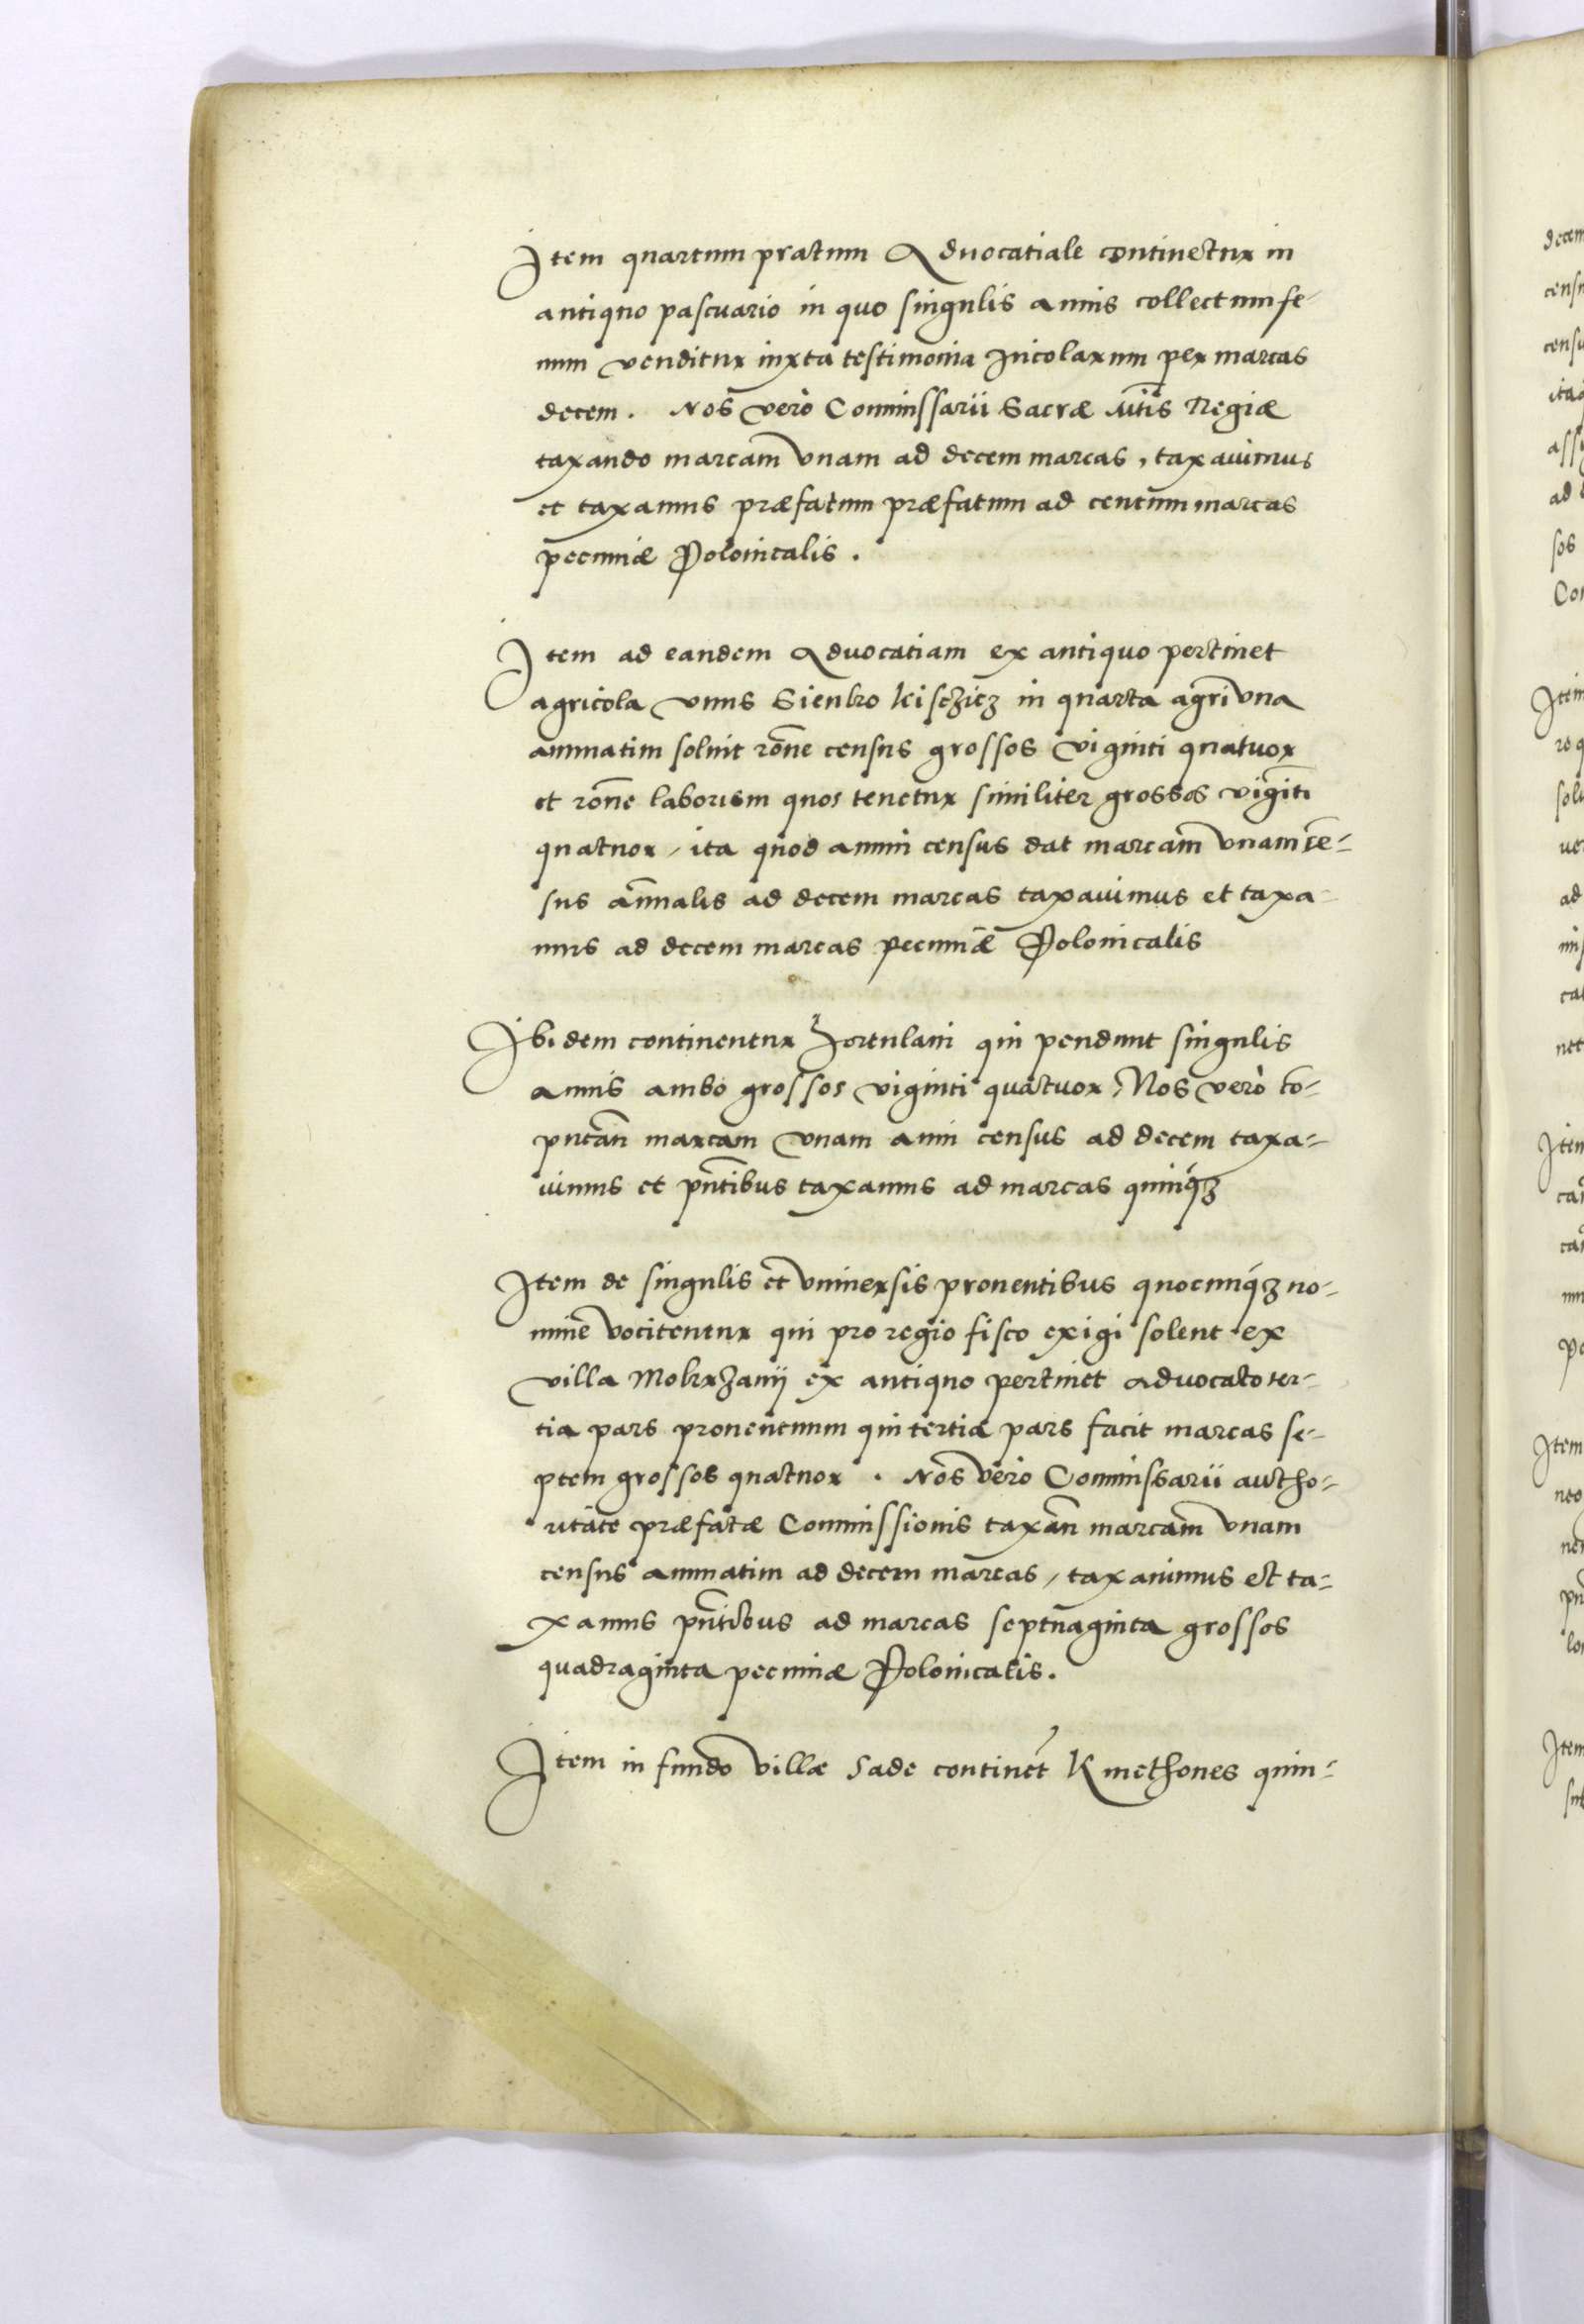 Item quartum pratum Advocatiale continetur in
antiquo pascuario in quo singulis annis collectum fe-
num venditur iuxta testimonia Incolarum per marcas
decem. Nos verò Commissarii Sacræ Mtis Regiæ
taxando marcam vnam ad decem marcas, taxauimus
et taxamus præfatum præfatum ad centum marcas
pecuniæ Polonicalis.
Item ad eandem Aduocatiam ex antiquo pertinet
agricola vnus Sienko in quarta agri vna
annuatim soluit rõne census grossos viginti quatuor
et rõne laborum quos tenetur similiter grossos viginti
quatuor, ita quod annui census dat marcam vnam cẽ-
sus annualis ad decem marcas taxauimus et taxa-
mus ad decem marcas pecuniæ Polonicalis
Ibidem continentur Hortulani qui pendunt singulis
annis ambo grossos viginti quatuor, Nos verò cõ-
putañ marcam vnam anni census ad decem taxa-
uimus et pñtibus taxamus ad marcas quinq3
Item de singulis et vniuersis prouentibus quocunq3 no-
mine vocitentur qui pro regio fisco exigi solent ex
villa Mokrzanÿ ex antiquo pertinet aduocato ter-
tia pars prouentuum qui tertia pars facit marcas se-
ptem grossos quatuor. Nos vero Commissarii autho-
ritate præfatæ Commissionis taxañ marcam vnam
census annuatim ad decem marcas, taxauimus et ta-
xamus pñtibus ad marcas septuaginta grossos
quadraginta pecuniæ Polonicalis.
Item in fundo villæ Sade continet Kmethones quin-
decem